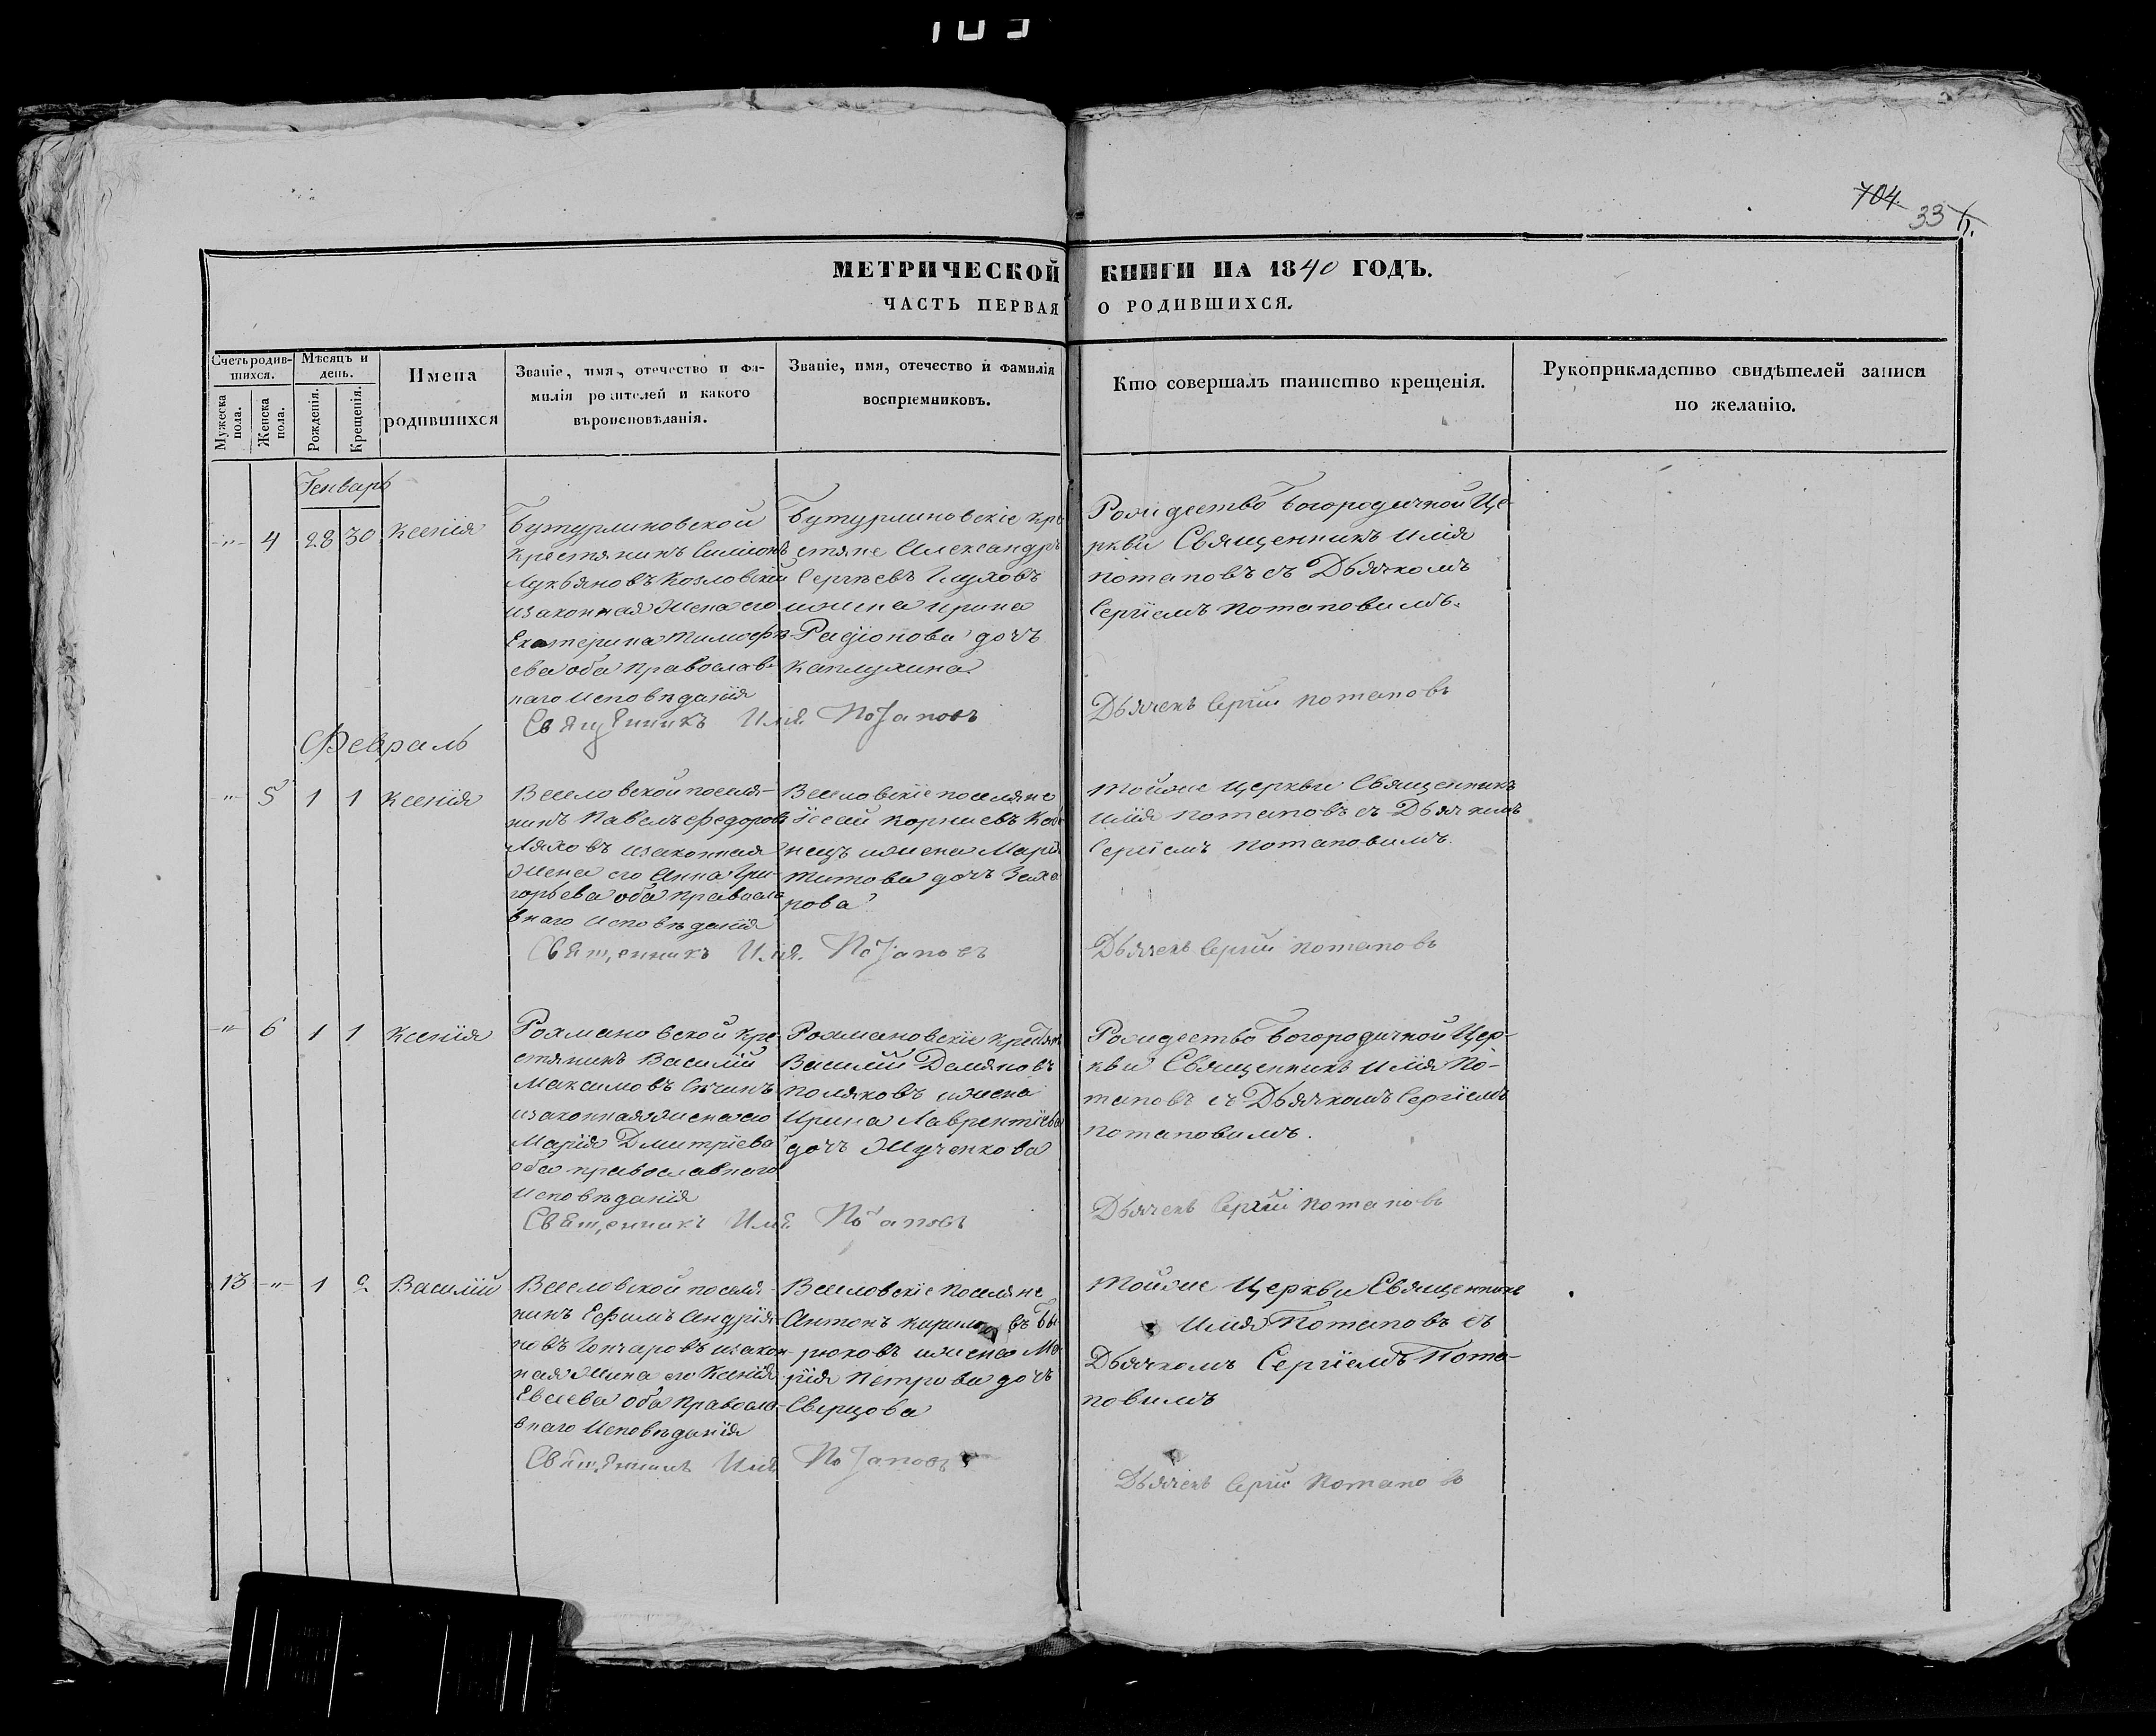 704.
33
МЕТРИЧЕСКОЙ КНИГИ НА 1840 ГОДЪ.
ЧАСТЬ ПЕРВАЯ О РОДИВШИХСЯ.
Счетъ родив-
шихся.
Мужеска пола.
Женска пола.
Мѣсяцъ и
день.
Рожденія.
Крещенія.
Имена
родившихся
Званіе, имя, отечество и фа-
милія родителей и какого
вѣроисповѣданія.
Званіе, имя, отечество и фамилія
воспріемниковъ.
Кто совершалъ таинство крещенія.
Рукоприкладство свидѣтелей записи
по желанію.
Генварь
-"- 4 28 30 Ксенія
Бутурлиновской
крестянинъ Симіонъ
Лукьяновъ Козловскій
изаконная жена его
Екатерина Тимофѣ-
ева оба православ-
наго исповѣданія
Бутурлиновскіе кре
стяне Александръ
Сергѣевъ Глуховъ
ижена Ирина
Радіонова дочь
Каплунина
Рождество Богородичной Це-
ркви Священникъ Илія
Потаповъ съ Дьячкомъ
Сергіемъ Потаповимъ.
Священникъ Илія Потаповъ
Дьячекъ Сергій Потаповъ
Февраль
-"- 5 1 1 Ксенія
Веселовской поселя-
нинъ Павелъ Федоровъ
Ляховъ изаконная
жена его Анна Гри-
горьева оба правосла
внаго исповѣданія
Веселовскіе поселяне
Корнѣевъ
нецъ ижена Марія
Титова дочь Заха
рова
Тойже церкви Священникъ
Илія Потаповъ съ Дьячкомъ
Сергіемъ Потаповимъ.
Священникъ Илія Потаповъ
Дьячекъ Сергій Потаповъ
-"- 6 1 1 Ксенія
Рохмановской кре-
стянинъ Василій
Максимовъ
изаконная жена его
Марія Дмитріева
оба православнаго
исповѣданія
Рохмановскіе крестян
Василій Демяновъ
Поляковъ ижена
Ирина Лаврентіева
дочь Жученкова
Рождество Богородичной Цер-
кви Священникъ Илія По-
таповъ съ Дьячкомъ Сергіемъ
Потаповимъ.
Священникъ Илія Потаповъ
Дьячекъ Сергій Потаповъ
13 -"- 1 2 Василій
Веселовской поселя-
нинъ Ефимъ Андрія-
новъ Гончаровъ изакон-
ная жена его Ксенія
Евсеева оба правосла-
внаго исповѣданія
Веселовскіе поселяне
Антонъ Бы-
рюковъ ижена Ма
рія Петрова дочь
Сверцова
Тойже Церкви Священникъ
Илія Потаповъ съ
Дьячкомъ Сергіемъ Пота-
повимъ
Священникъ Илія Потаповъ
Дьячекъ Сергій Потаповъ